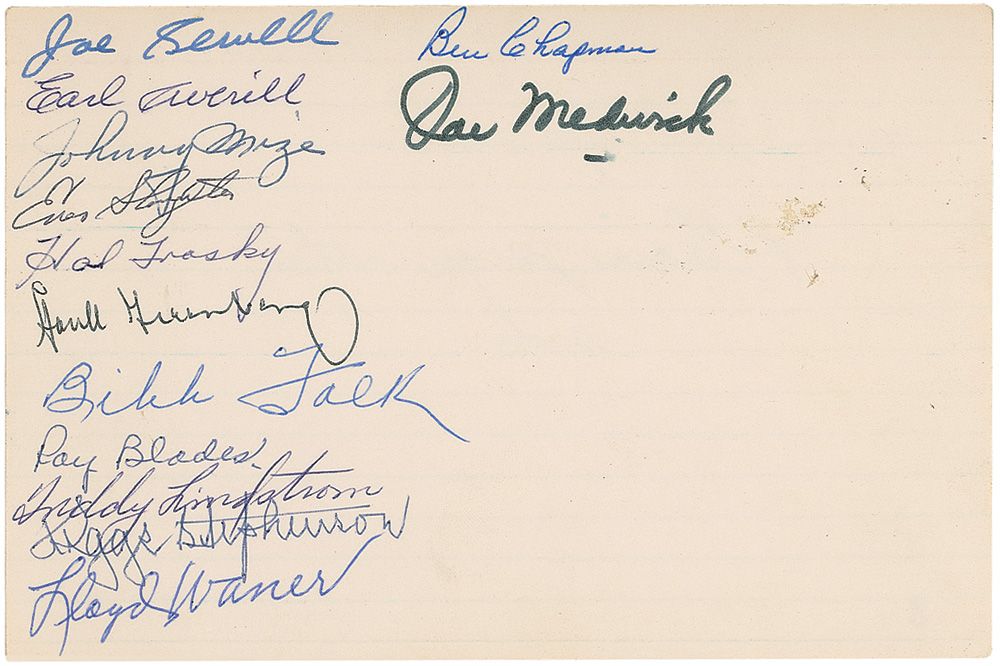 Joe Sewell
Earl Averill
Johnny Mize
Enos Slaughter
Hal Trosky
Hank Greenberg
Bibb Falk
Ray Blades
Freddy Lindstrom
Riggs Stephenson
Lloyd Waner
Ben Chapman
Joe Medwick